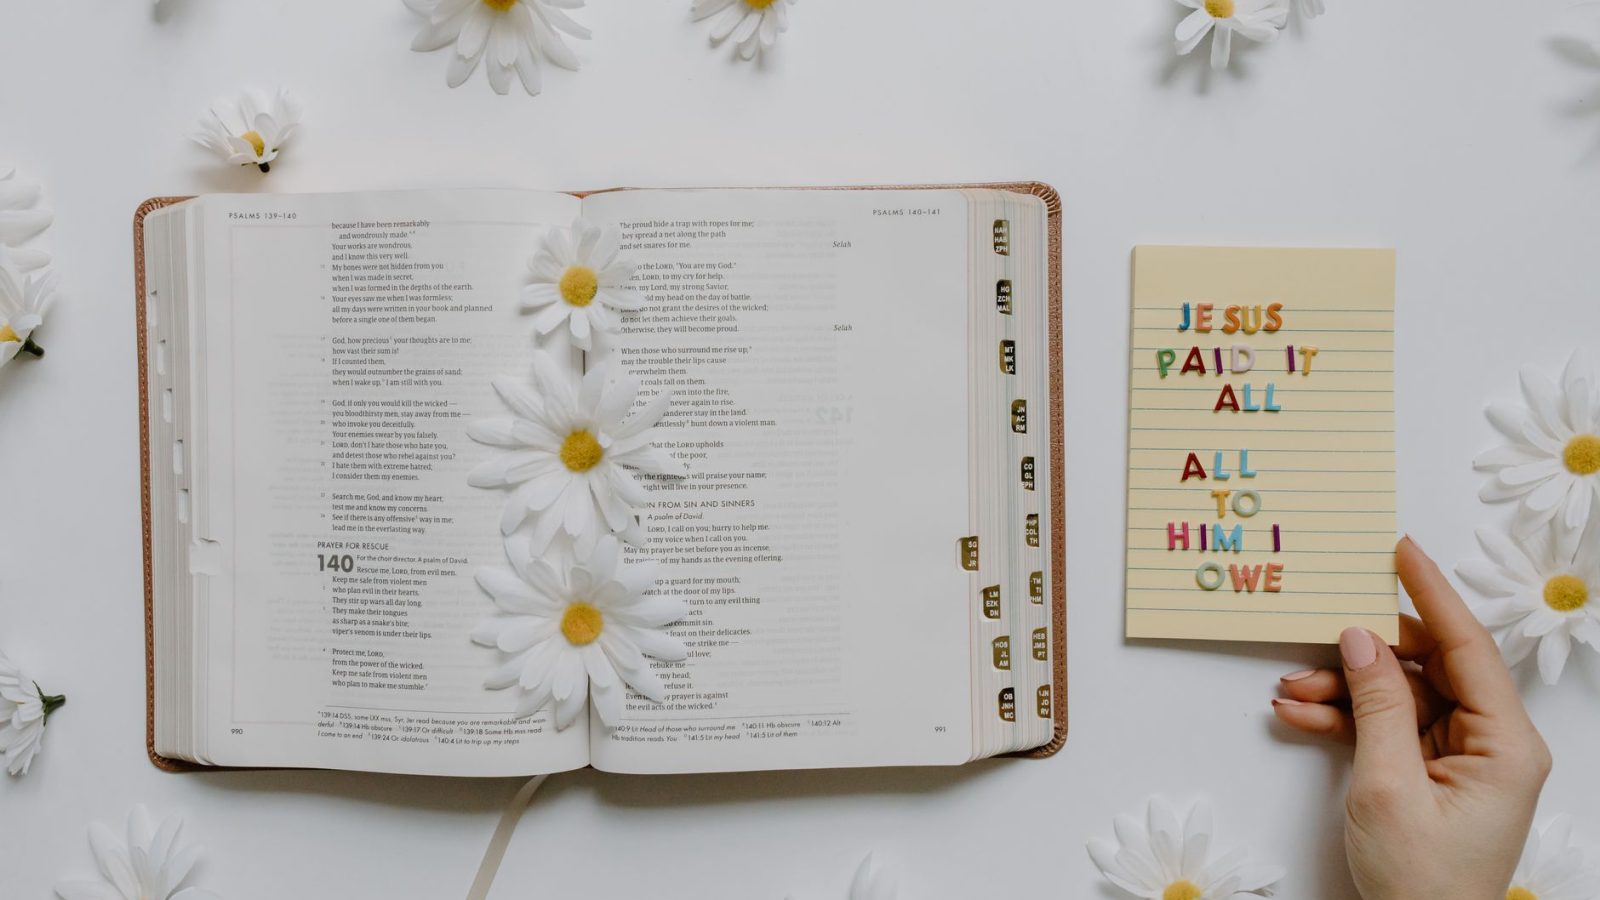 PSALMS 139–140
because I have been remarkably
and wondrously made.
Your works are wondrous,
and I know this very well.
My bones were not hidden from you
when I was made in secret,
when I was formed in the depths of the earth.
Your eyes saw me when I was formless;
all my days were written in your book and planned
before a single one of them began.
God, how precious your thoughts are to me;
how vast their sum is!
If I counted them,
they would outnumber the grains of sand;
when I wake up, I am still with you.
God, if only you would kill the wicked —
you bloodthirsty men, stay away from me —
who invoke you deceitfully.
Your enemies swear by you falsely.
LORD, don't I hate those who hate you,
and detest those who rebel against you?
I hate them with extreme hatred;
I consider them my enemies.
Search me, God, and know my heart;
test me and know my concerns.
See if there is any offensive way in me;
lead me in the everlasting way.
PRAYER FOR RESCUE
140 For the choir director. A psalm of David.
Rescue me, LORD, from evil men.
Keep me safe from violent men
who plan evil in their hearts.
They stir up wars all day long.
They make their tongues
as sharp as a snake's bite;
viper's venom is under their lips.
Protect me, LORD,
from the power of the wicked.
Keep me safe from violent men
who plan to make me stumble.
139:14 DSS, some LXX mss, Syr, Jer read because you are remarkable and won-
derful 139:14 Hb obscure 139:17 Or difficult 139:18 Some Hb mss read
I come to an end 139:24 Or idolatrous 140:4 Lit to trip up my steps
990
PSALMS 140–141
The proud hide a trap with ropes for me;
they spread a net along the path
and set snares for me. Selah
to the LORD, "You are my God."
LORD, to my cry for help.
LORD, my Lord, my strong Savior,
my head on the day of battle.
LORD, do not grant the desires of the wicked;
do not let them achieve their goals.
Otherwise, they will become proud. Selah
When those who surround me rise up,
may the trouble their lips cause
overwhelm them.
coals fall on them.
into the fire,
never again to rise.
stay in the land.
hunt down a violent man.
that the LORD upholds
of the poor,
the righteous will praise your name;
will live in your presence.
FROM SIN AND SINNERS
A psalm of David.
LORD, I call on you; hurry to help me.
to my voice when I call on you.
May my prayer be set before you as incense,
the raising of my hands as the evening offering.
up a guard for my mouth;
watch at the door of my lips.
turn to any evil thing
acts
commit sin.
feast on their delicacies.
one strike me —
love;
rebuke me —
my head;
refuse it.
Even my prayer is against
the evil acts of the wicked.
140:9 Lit Head of those who surround me 140:11 Hb obscure 140:12 Alt
Hb tradition reads You 141:5 Lit my head 141:5 Lit of them
991
NAH
HAB
ZPH
HG
ZCH
MAL
MT
MK
LK
JN
AC
RM
CO
GL
EPH
PHP
COL
TH
SG
IS
JR
TM
TI
PHM
LM
EZK
DN
HEB
JMS
PT
HOS
JL
AM
OB
JNH
MC
JN
JD
RV
JESUS
PAID IT
ALL
ALL
TO
HIM I
OWE